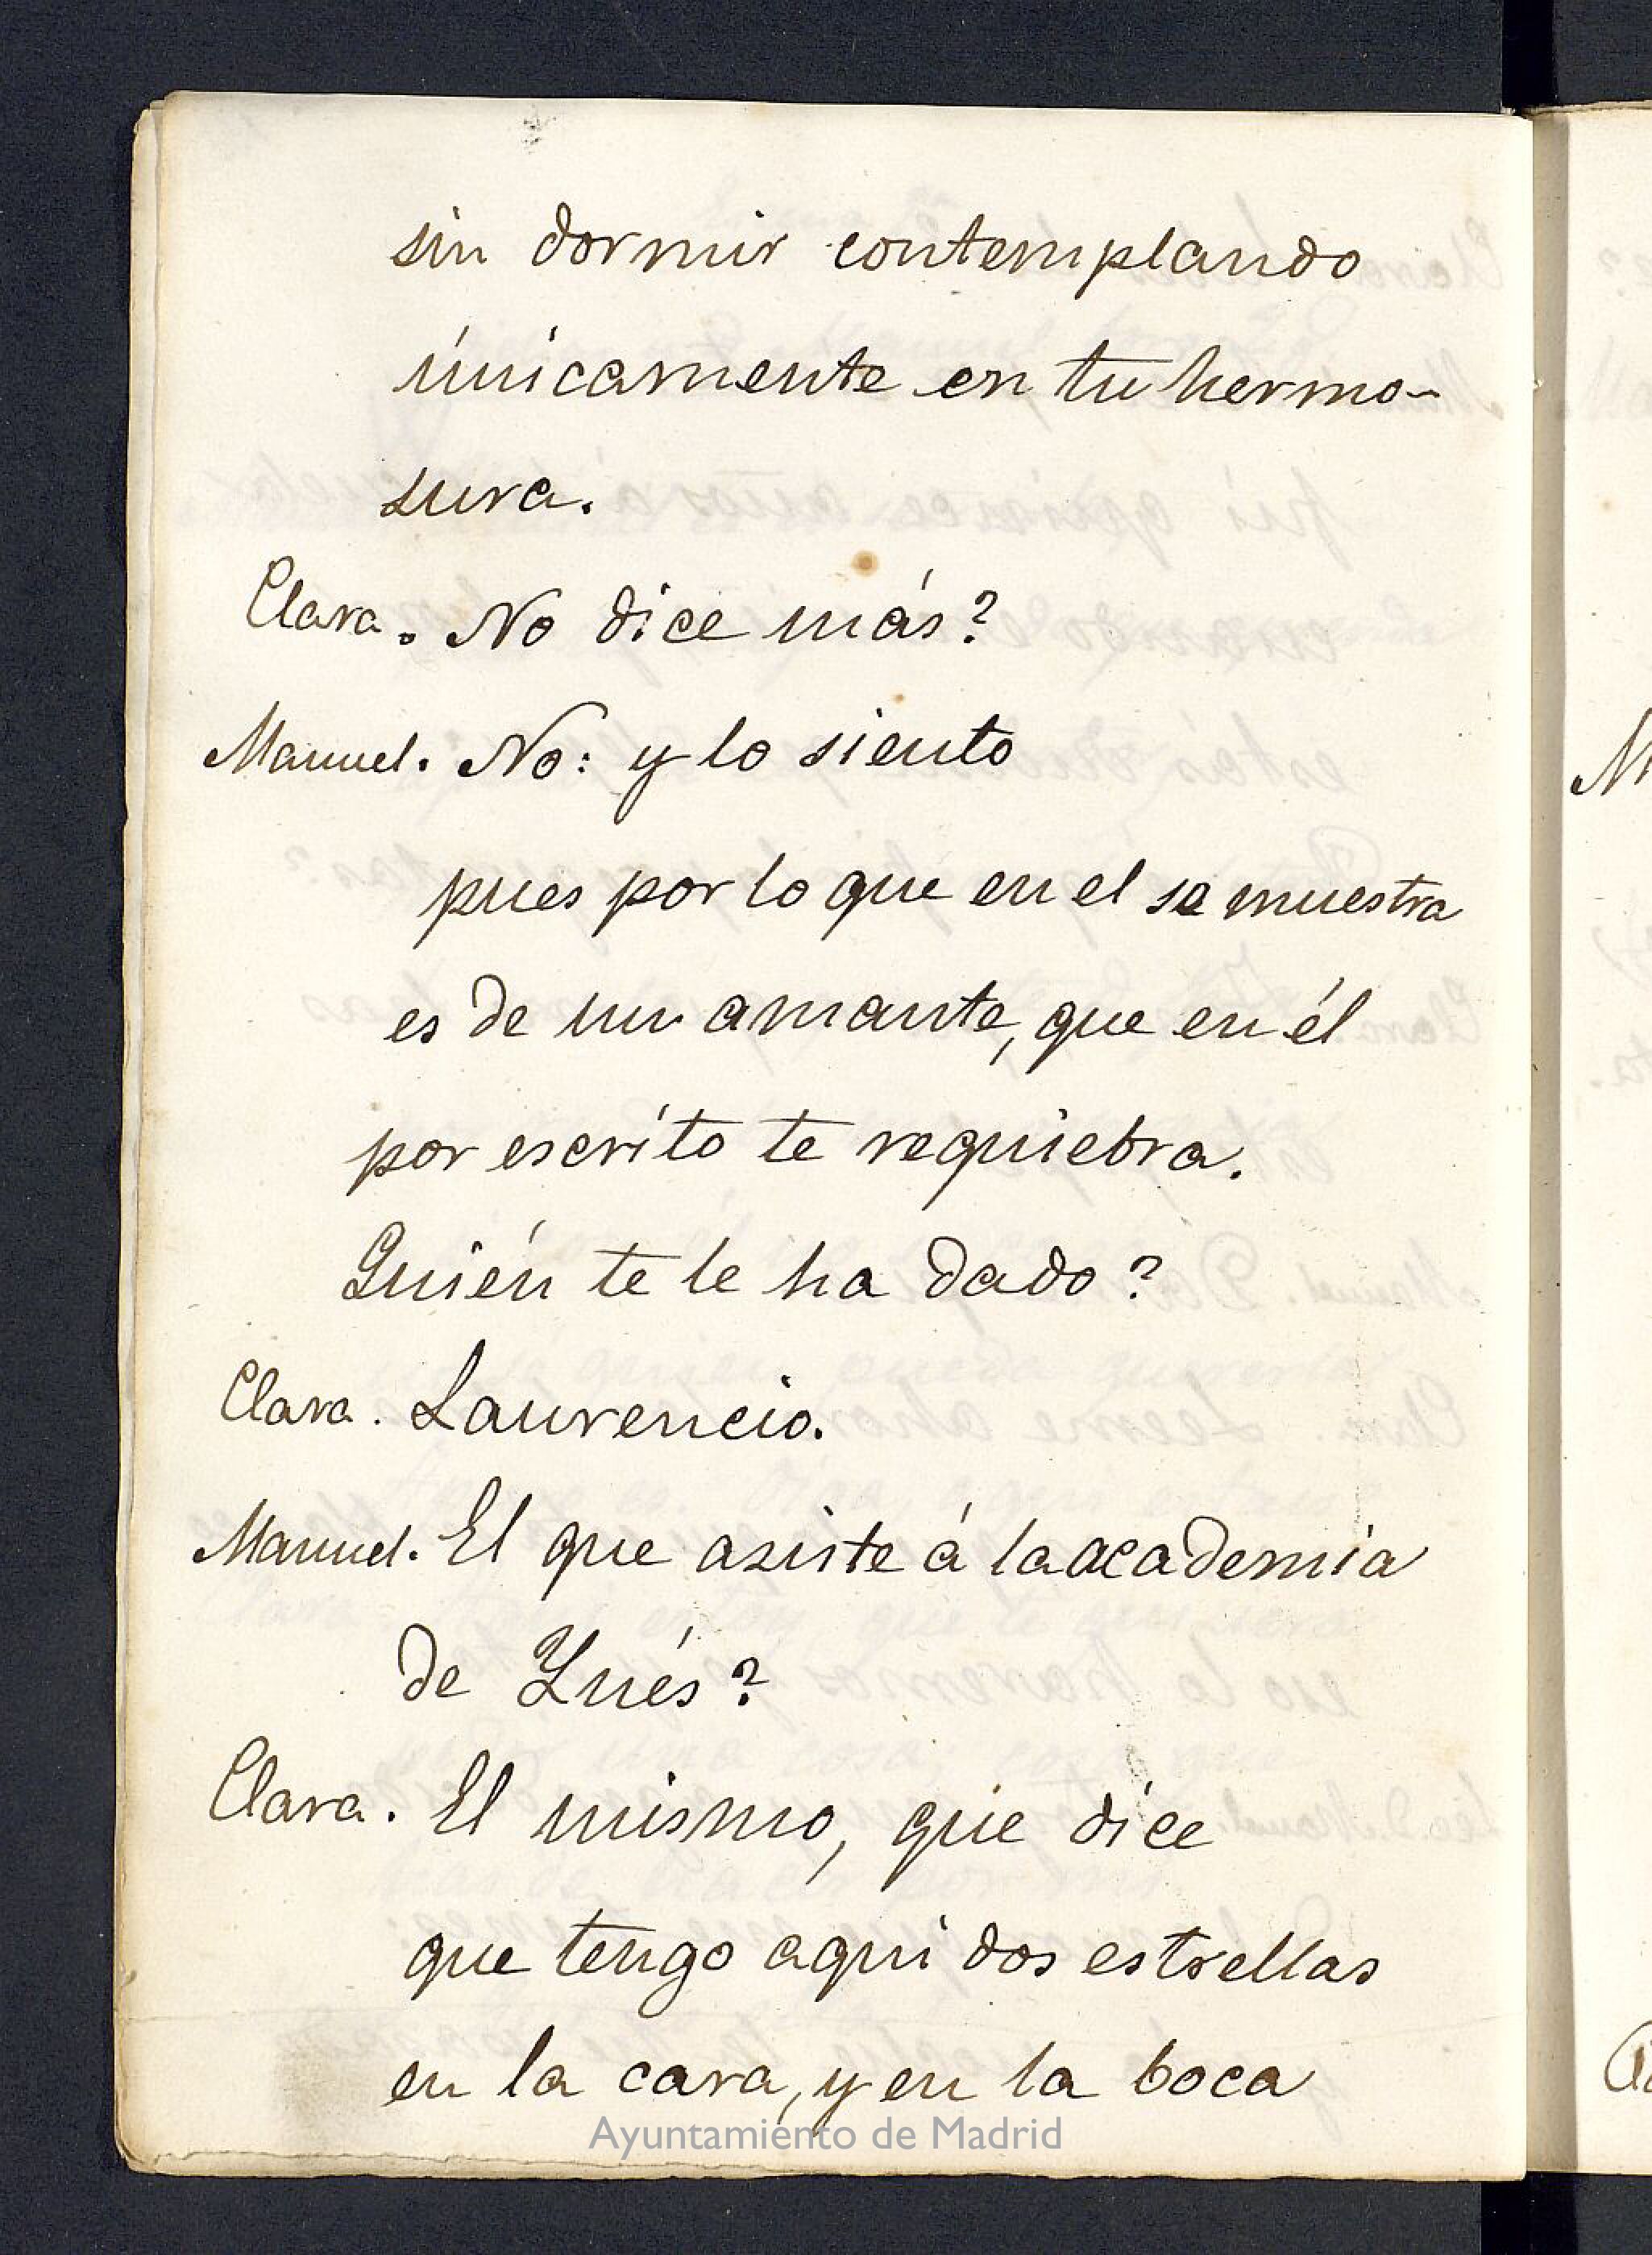 sin dormir contemplando
únicamente en tu hermo-
sura.
Clara. No dice más?
Manuel. No: y lo siento
pues por lo que en el se muestra
es de un amante, que en él
por escrito te requiebra.
Quién te le ha dado?
Clara. Laurencio.
Manuel. El que asiste á la academia
de Inés?
Clara. El mismo, que dice
que tengo aqui dos estrellas
en la cara, y en la boca
Ayuntamiento de Madrid